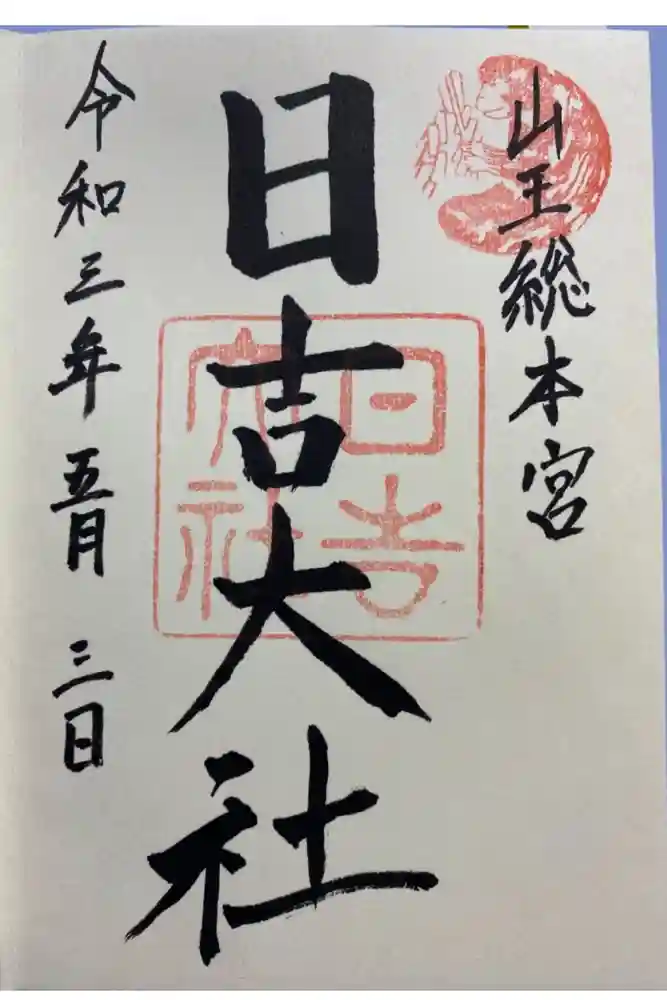 山王総本宮
日吉大社
日吉
大社
令和三年五月三日